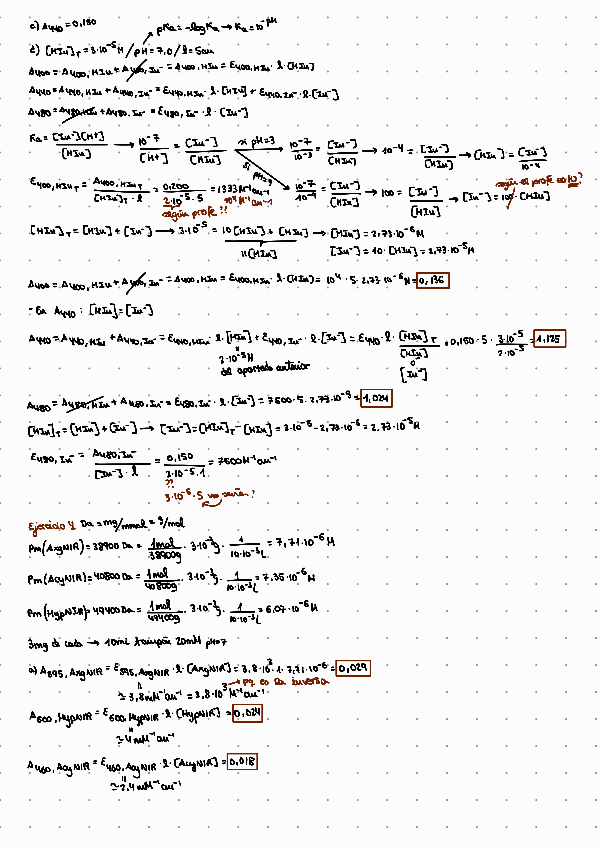 c) A₄₄₀ = 0,150
pKa = -log Ka → Ka = 10^-pH
d) [HIn]T = 3·10⁻⁵ M / pH = 7,0 / l = 5cm
A₄₀₀ = A₄₀₀,HIn + A₄₀₀,In⁻ = A₄₀₀,HIn = ε₄₀₀,HIn · l · [HIn]
A₄₄₀ = A₄₄₀,HIn + A₄₄₀,In⁻ = ε₄₄₀,HIn · l · [HIn] + ε₄₄₀,In⁻ · l · [In⁻]
A₄₈₀ = A₄₈₀,HIn + A₄₈₀,In⁻ = ε₄₈₀,In⁻ · l · [In⁻]
Ka = [In⁻][H+] / [HIn] → 10⁻⁷ / [H+] = [In⁻] / [HIn] x pH=3 → 10⁻⁷ / 10⁻³ = [In⁻] / [HIn] → 10⁻⁴ = [In⁻] / [HIn] → [HIn] = [In⁻] / 10⁻⁴
si pH=9 → 10⁻⁷ / 10⁻⁹ = [In⁻] / [HIn] → 100 = [In⁻] / [HIn] → [In⁻] = 100 · [HIn]
según el profe es 10?
ε₄₀₀,HIn = A₄₀₀,HIn / [HIn]T · l = 0,200 / 2·10⁻⁵·5 = 1333 M⁻¹cm⁻¹
10⁴ M⁻¹cm⁻¹
según profe??
[HIn]T = [HIn] + [In⁻] → 3·10⁻⁵ = 10[HIn] + [HIn] → [HIn] = 2,73·10⁻⁶ M
11[HIn]
[In⁻] = 10·[HIn] = 2,73·10⁻⁵ M
A₄₀₀ = A₄₀₀,HIn + A₄₀₀,In⁻ = A₄₀₀,HIn = ε₄₀₀,HIn · l · [HIn] = 10⁴ · 5 · 2,73·10⁻⁶ M = 0,136
- En A₄₄₀ : [HIn] = [In⁻]
A₄₄₀ = A₄₄₀,HIn + A₄₄₀,In⁻ = ε₄₄₀,HIn · l · [HIn] + ε₄₄₀,In⁻ · l · [In⁻] = ε₄₄₀ · l · [HIn]T / [HIn] = 0,150 · 5 · 3·10⁻⁵ / 2·10⁻⁵ = 1,125
2·10⁻⁵ M
del apartado anterior
o
[In⁻]
A₄₈₀ = A₄₈₀,HIn + A₄₈₀,In⁻ = ε₄₈₀,In⁻ · l · [In⁻] = 7500·5·2,73·10⁻⁵ = 1,024
[HIn]T = [HIn] + [In⁻] → [In⁻] = [HIn]T - [HIn] = 3·10⁻⁵ - 2,73·10⁻⁶ = 2,73·10⁻⁵ M
ε₄₈₀,In⁻ = A₄₈₀,In⁻ / [In⁻] · l = 0,150 / 3·10⁻⁵·1 = 7500 M⁻¹cm⁻¹
??
3·10⁻⁵·5 no serían?
Ejercicio 4 Da = mg/mmol = g/mol
Pm (AxgNIR) = 38900 Da = 1mol / 38900g · 3·10⁻³g · 1 / 10·10⁻³L = 7,71·10⁻⁶ M
Pm (AcyNIR) = 40800 Da = 1mol / 40800g · 3·10⁻³g · 1 / 10·10⁻³L = 7,35·10⁻⁶ M
Pm (HypNIR) = 49400 Da = 1mol / 49400g · 3·10⁻³g · 1 / 10·10⁻³L = 6,07·10⁻⁶ M
3mg de cada → 10mL tampón 20mM pH=7
a) A₅₉₅,AxgNIR = ε₅₉₅,AxgNIR · l · [AxgNIR] = 3,8·10³ · 1 · 7,71·10⁻⁶ = 0,029
≃ 3,8 mM⁻¹cm⁻¹ = 3,8·10³ M⁻¹cm⁻¹ → pq es la inversa
A₆₀₀,HypNIR = ε₆₀₀,HypNIR · l · [HypNIR] = 0,024
≃ 4 mM⁻¹cm⁻¹
A₄₆₀,AcyNIR = ε₄₆₀,AcyNIR · l · [AcyNIR] = 0,018
≃ 2,4 mM⁻¹cm⁻¹